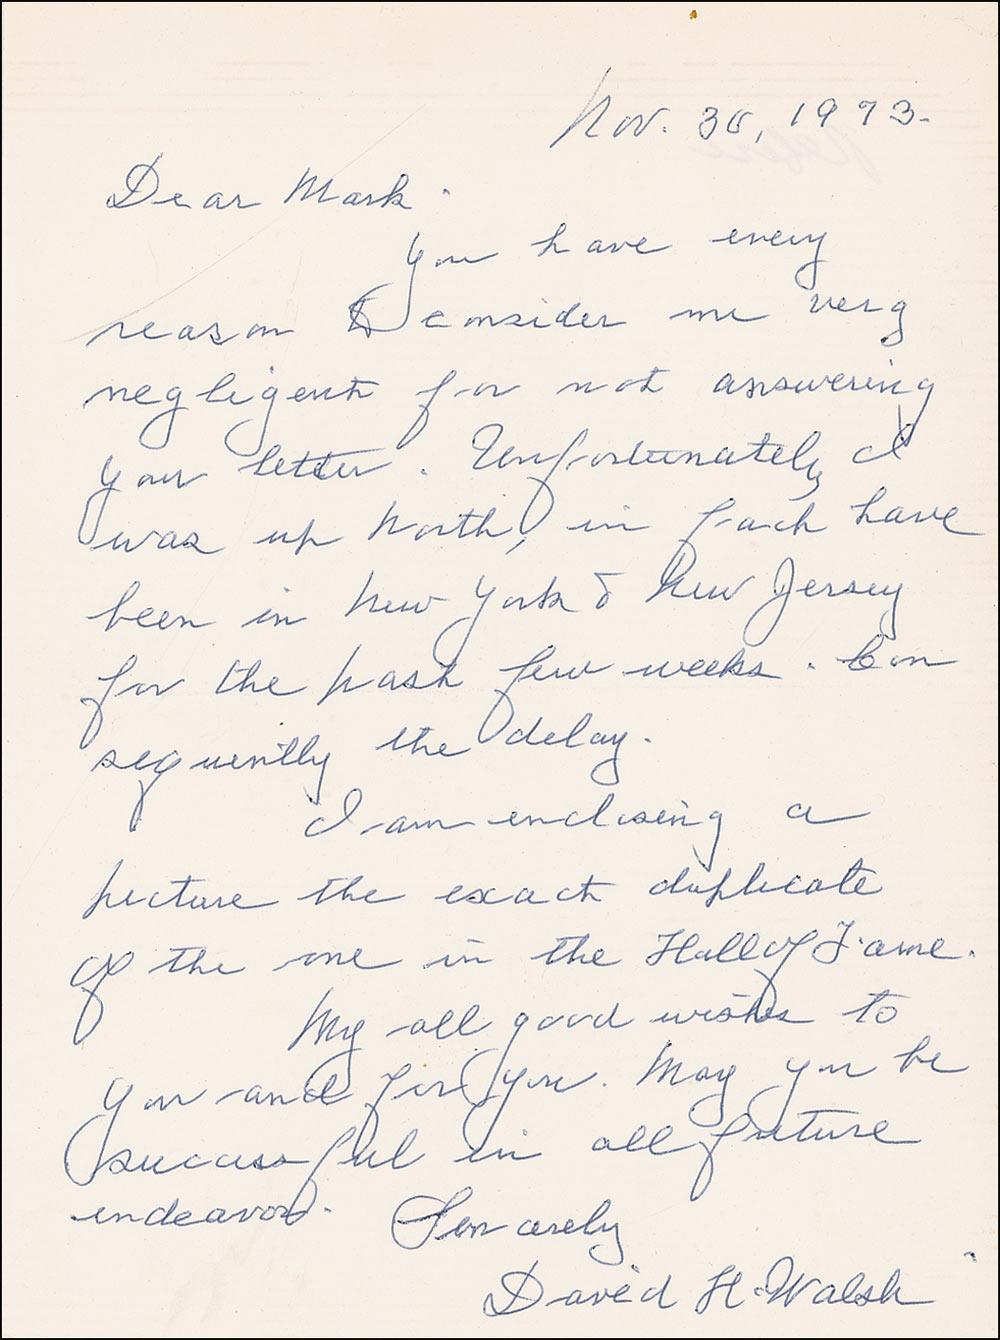 Nov. 30, 1973.
Dear Mark.
You have every
reason to consider me very
negligent for not answering
your letter. Unfortunately I
was up North, in fact have
been in New York & New Jersey
for the past few weeks. Con
sequently the delay.
I am enclosing a
picture the exact duplicate
of the one in the Hall of Fame.
My all good wishes to
you and for you. May you be
successful in all future
endeavors.
Sincerely
David H. Walsh